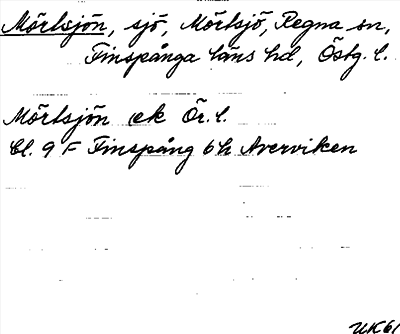 Mörtsjön, sjö, Mörtsjö, Regna sn,
Finspånga läns hd, Östg. l.
Mörtsjön ek Ör. l.
bl. 9 F Finspång 6h Averviken
UK61